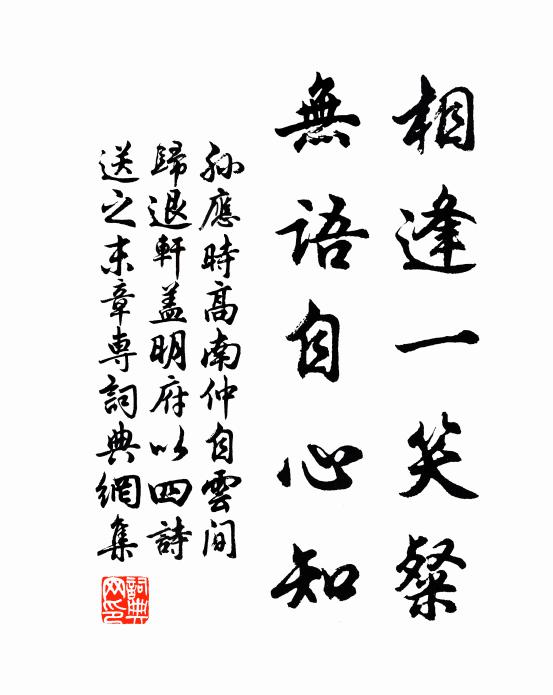 相逢一笑粲
無語自心知
孫應時高南仲自雲間
歸退軒蓋明府以四詩
送之末章專詞典網集
詞典網印